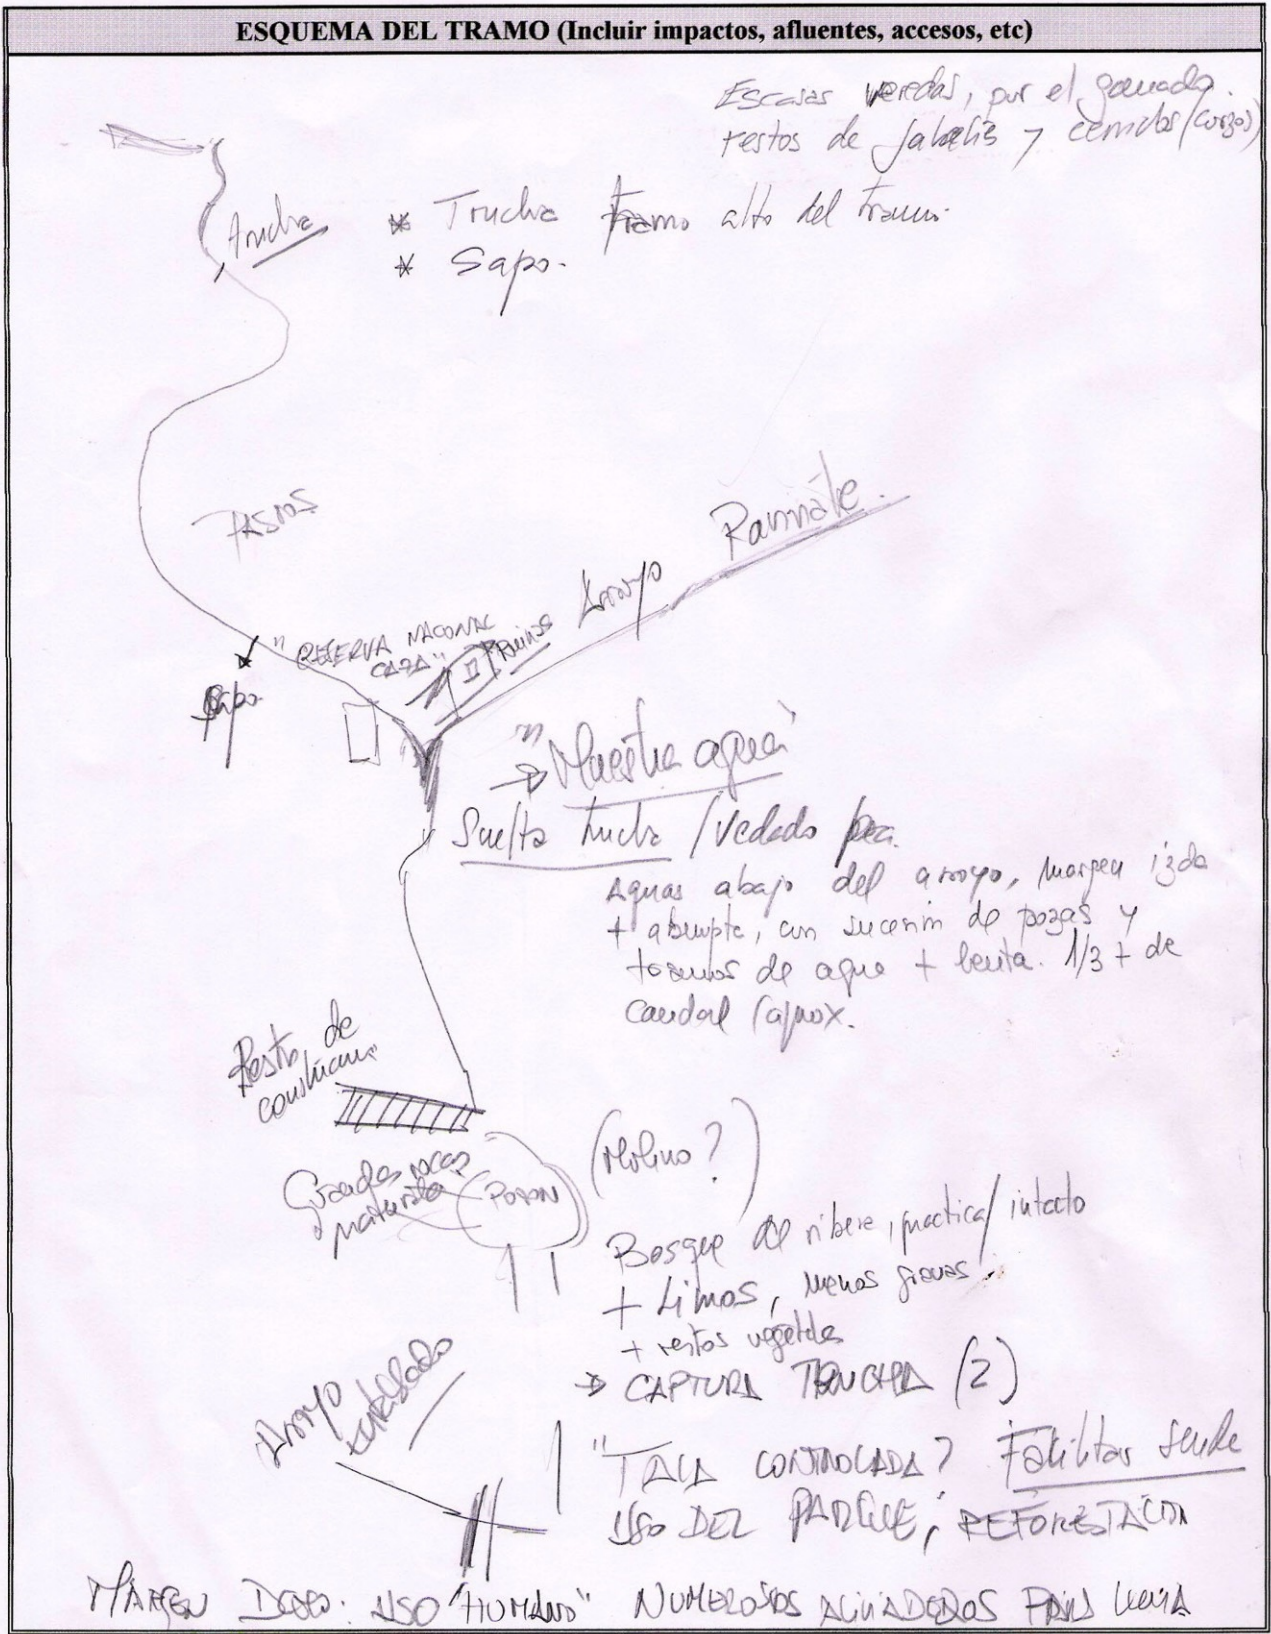 ESQUEMA DEL TRAMO (Incluir impactos, afluentes, accesos, etc)
Escasas veredas, por el ganado.
restos de jabalís y cérvidos (corzos)
trucha
* Trucha tramo alto del tramo.
* Sapo.
PASTOS
Arroyo
"RESERVA NACIONAL
CAZA"
Ruinas
Sapo.
→ "Muestra agua"
Suelta trucha / Vedado
Aguas abajo del arroyo, margen izda
+ abrupta, con sucesión de pozas y
tramos de agua + lenta. 1/3 + de
caudal (aprox.
Resto de
(Molino?)
Grandes rocas
POZÓN
Bosque de ribera, practica/ intacto
+ Limos, menos gravas.
+ restos vegetales
→ CAPTURA TRUCHA (2)
Arroyo
"TALA CONTROLADA? Facilitar
USO DEL PARQUE; REFORESTACIÓN
MARGEN USO "HUMANO" NUMEROSOS PARA